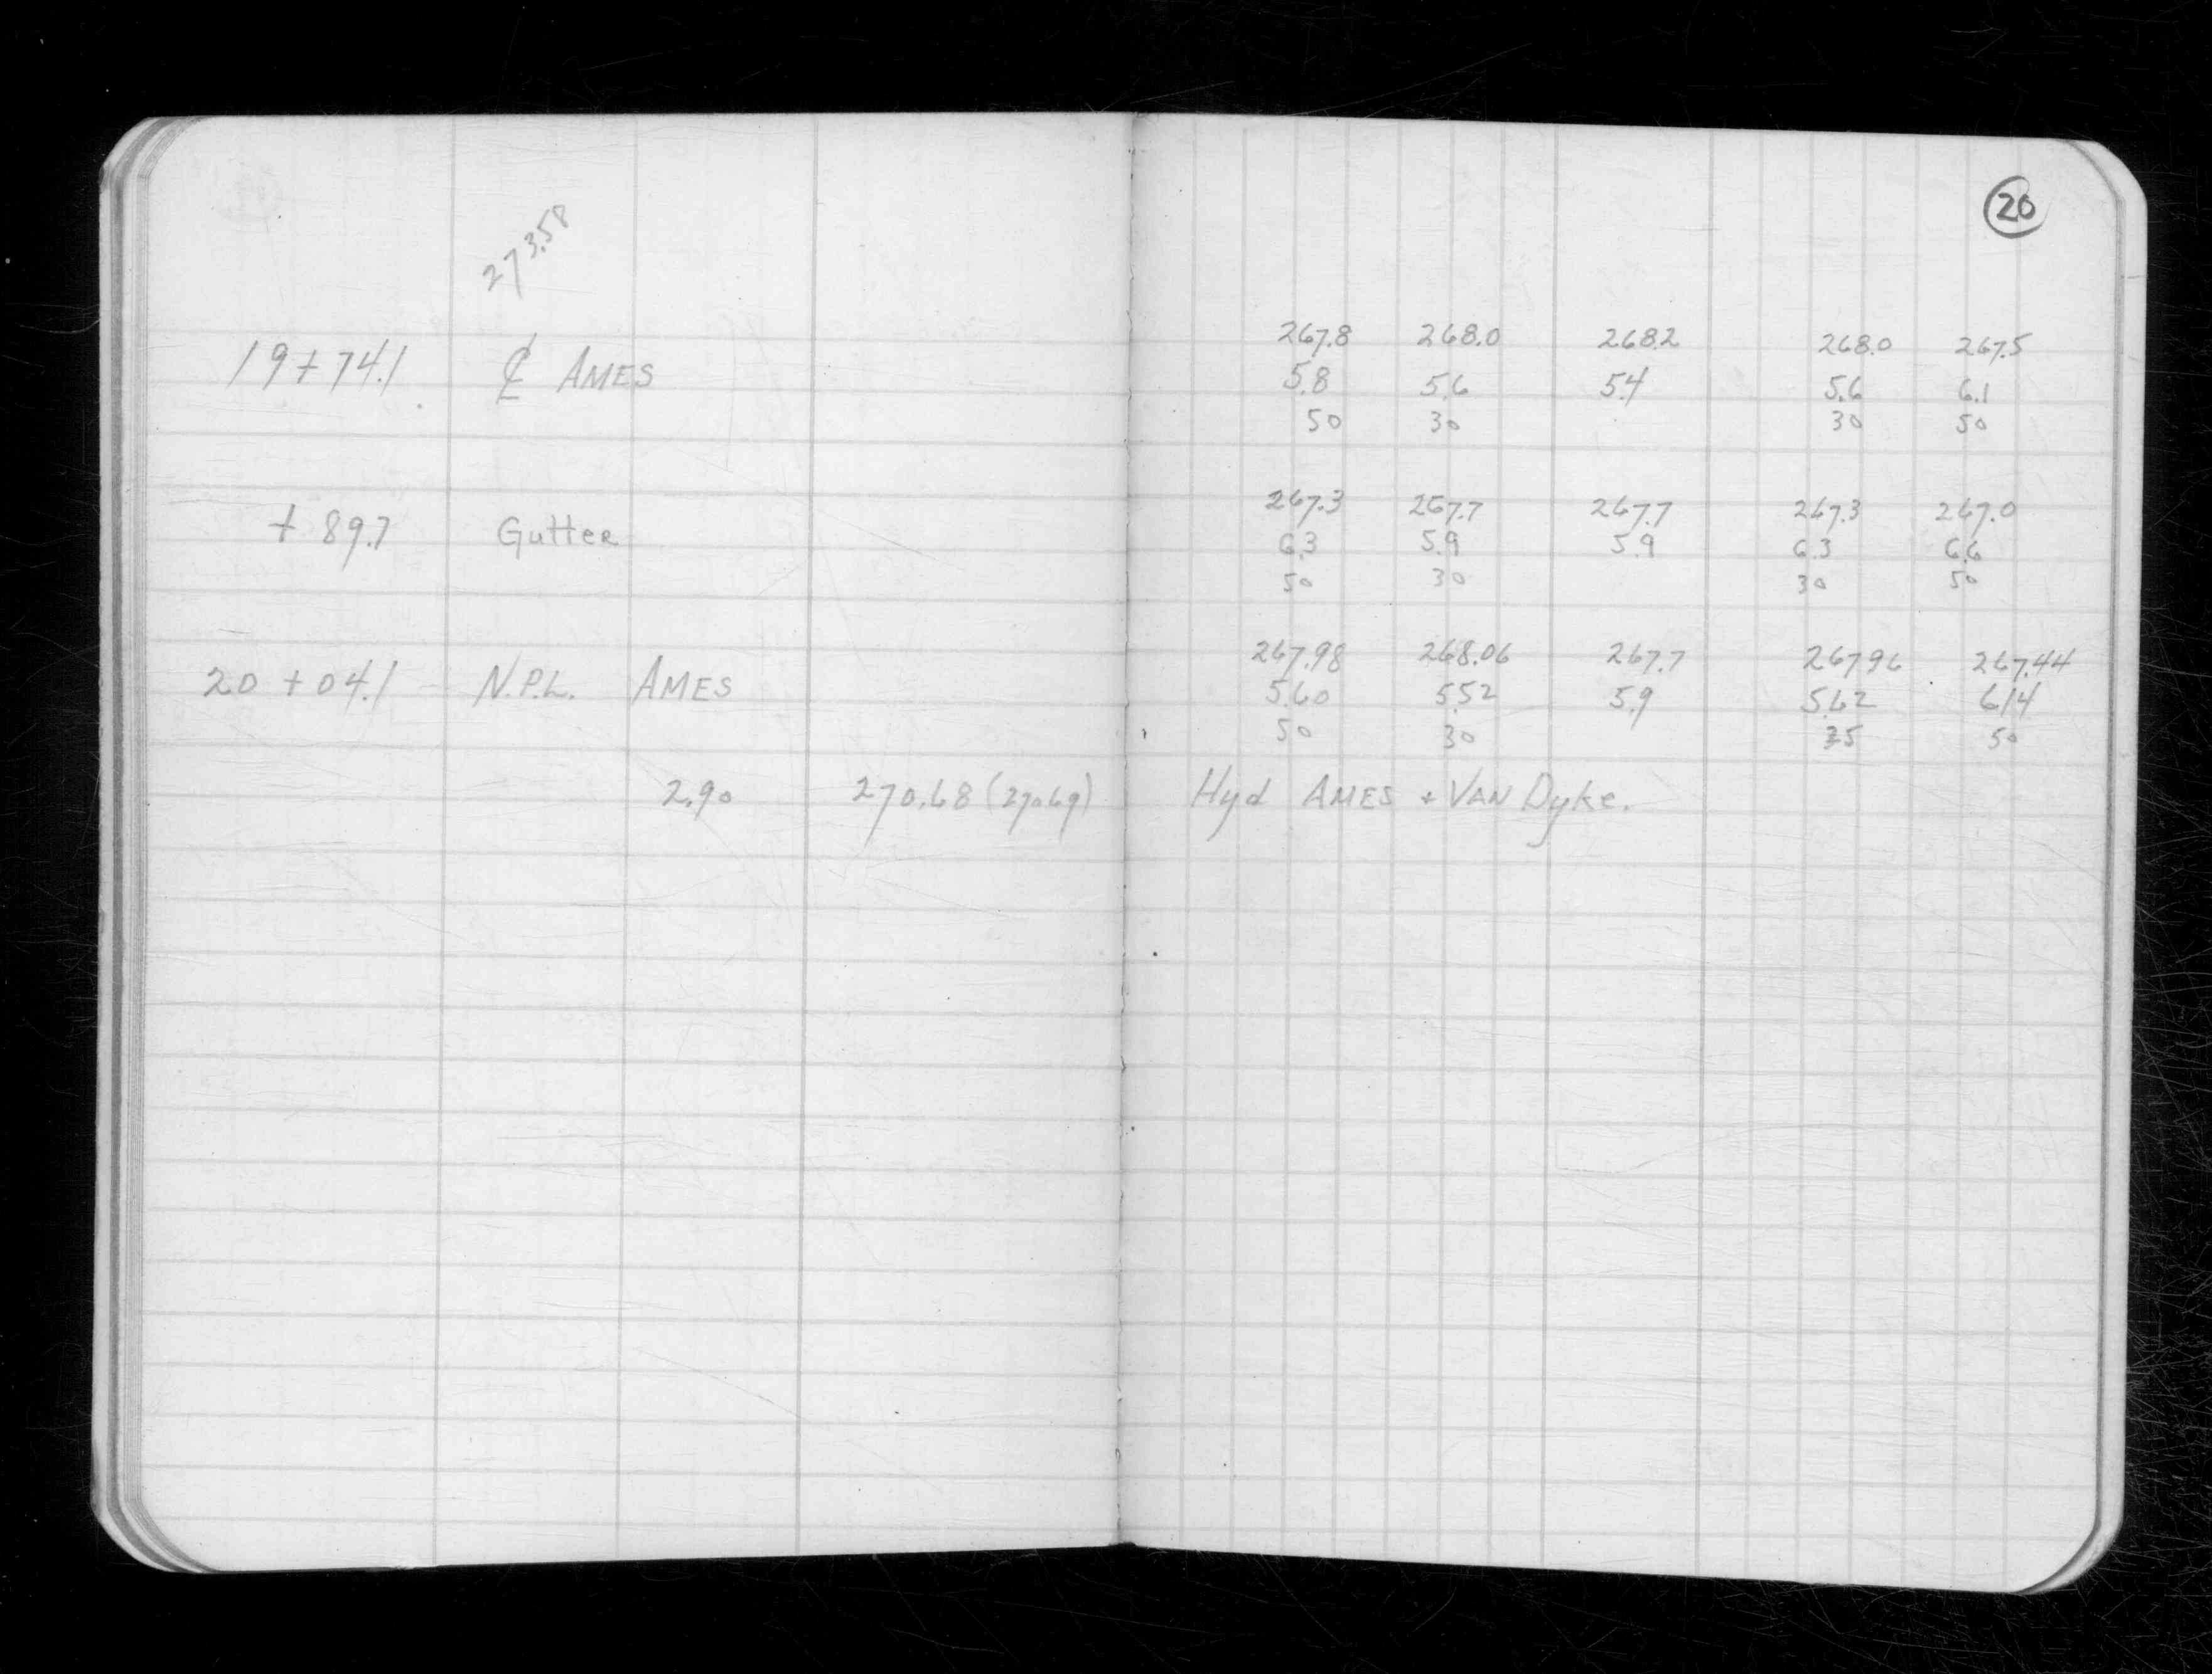 20
273.58
267.8 268.0 268.2 268.0 267.5
19+74.1 ₵ AMES 5.8 5.6 5.4 5.6 6.1
50 30 30 50
267.3 267.7 267.7 267.3 267.0
+ 89.7 Gutter 6.3 5.9 5.9 6.3 6.6
50 30 30 50
267.98 268.06 267.7 267.96 267.44
20 + 04.1 N.P.L. AMES 5.60 5.52 5.9 5.62 6.14
50 30 35 50
2.90 270.68 (270.69) Hyd AMES + VAN Dyke.